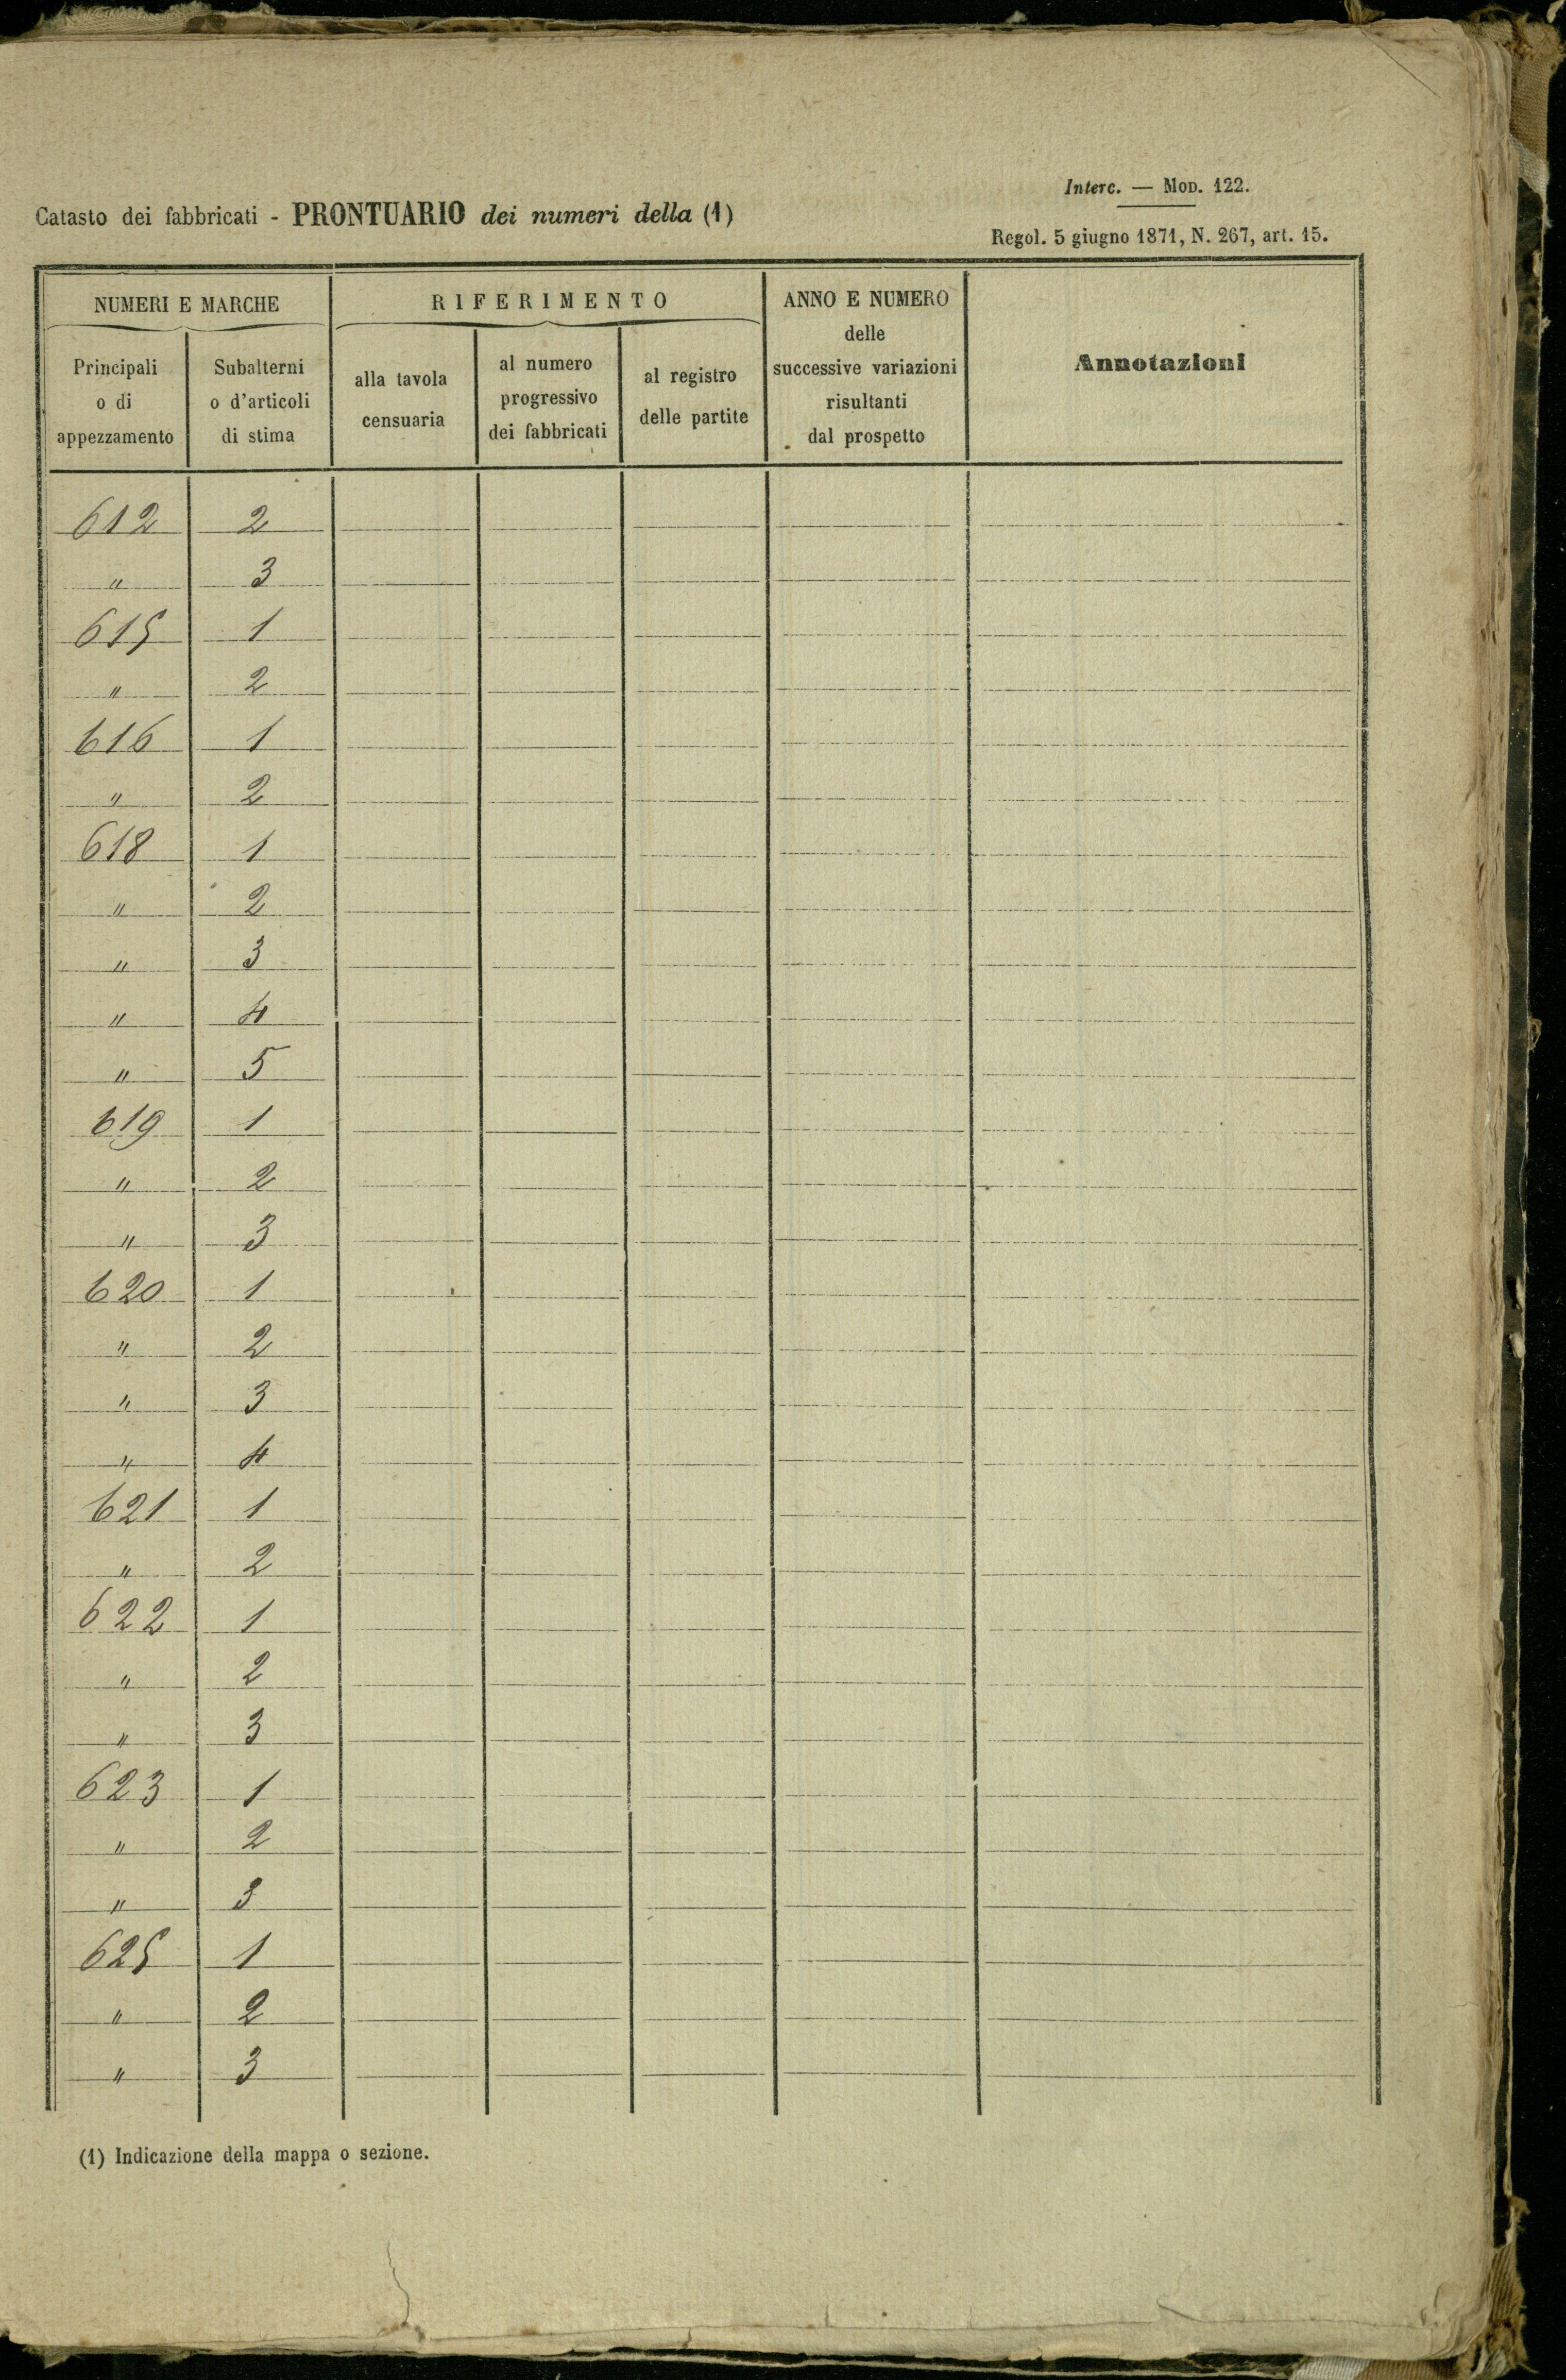 Interc. — Mod. 122.
Catasto dei fabbricati - PRONTUARIO dei numeri della (1)
Regol. 5 giugno 1871, N. 267, art. 15.
NUMERI E MARCHE
Principali
o di
appezzamento
Subalterni
o d'articoli
di stima
RIFERIMENTO
alla tavola
censuaria
al numero
progressivo
dei fabbricati
al registro
delle partite
ANNO E NUMERO
delle
successive variazioni
risultanti
dal prospetto
Annotazioni
612 2
" 3
615 1
" 2
616 1
" 2
618 1
" 2
" 3
" 4
" 5
619 1
" 2
" 3
620 1
" 2
" 3
" 4
621 1
" 2
622 1
" 2
" 3
623 1
" 2
" 3
625 1
" 2
" 3
(1) Indicazione della mappa o sezione.